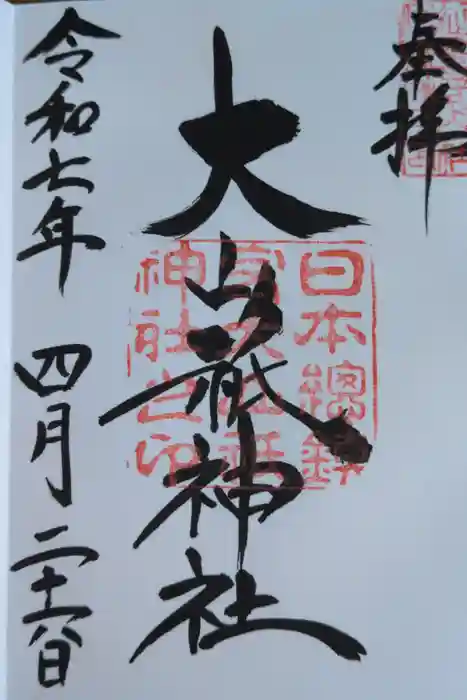 奉拝
大山祇神社
日本總鎮
守大山祇
神社之印
令和七年 四月二十六日